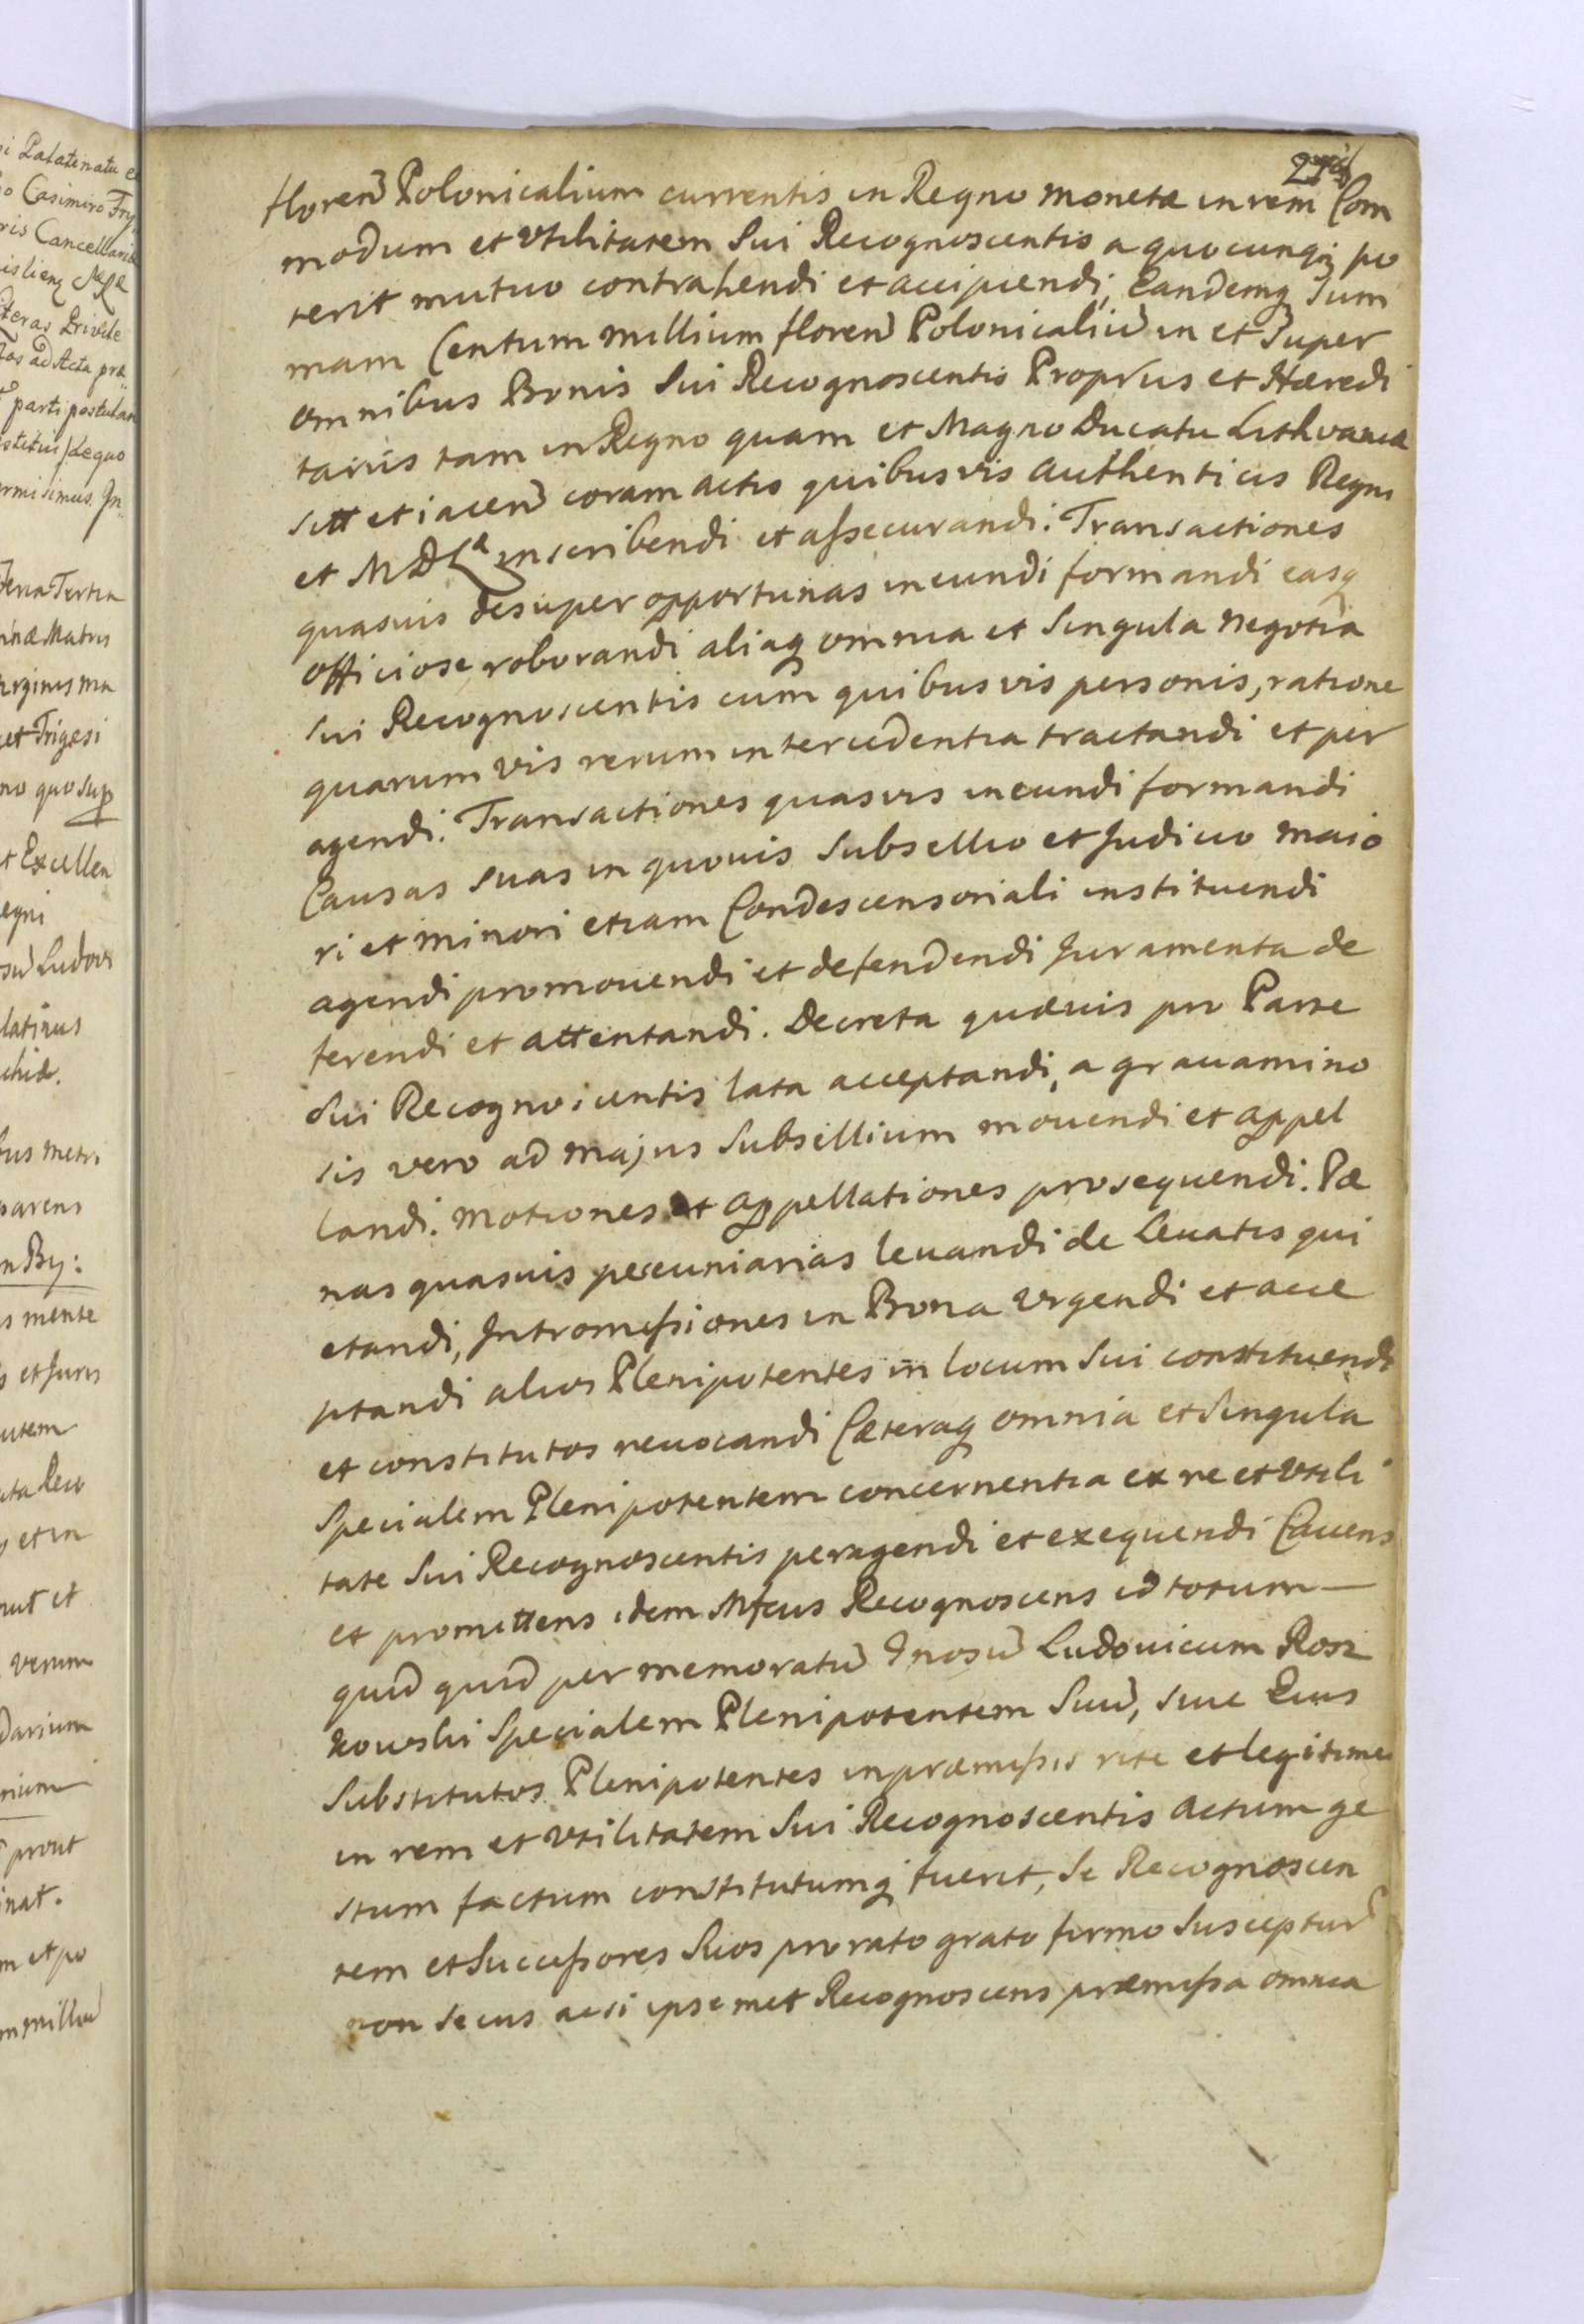 floren Polonicalium currentis in Regno monetæ in rem Com
modum et Vtilitatem Sui Recognoscentis a quocunq po
terit mutuo contrahendi et accipiendi, Eandemq Sum
mam Centum millium floren Polonicaliu in et Super
omnibus Bonis Sui Recognoscentis Proprijs et Hæredi
tarijs tam in Regno quam et Magno Ducatu Lithvaniæ
sitt et iacen coram actis quibusvis authenticis Regni
et M D L inscribendi et assecurandi. Transactiones
quasuis desuper opportunas ineundi formandi easq
officiose roborandi aliaq omnia et Singula negotia
sui Recognoscentis cum quibusvis personis, ratione
quarumvis rerum intercedentia tractandi et per
agendi. Transactiones quasvis ineundi formandi
Causas suas in quouis Subsellio et Judicio maio
ri et minori etiam Condescensoriali instituendi
agendi promouendi et defendendi Juramenta de
ferendi et attentandi. Decreta quæuis pro Parte
Sui Recognoscentis lata acceptandi, a grauamino
sis vero ad majus Subsellium mouendi et appel
landi. Motiones et appellationes prosequendi. Pæ
nas quasuis pecuniarias leuandi de Leuatis qui
etandi, Intromissiones in Bona Vrgendi et acce
ptandi alios Plenipotentes in locum Sui constituendi
et constitutos reuocandi Cæteraq omnia et Singula
Specialem Plenipotentem concernentia ex re et Vtili
tate Sui Recognoscentis peragendi et exequendi Cauens
et promittens idem Mfcus Recognoscens id totum
quid quid per memoratu Gnosu Ludouicum Rosz
kowski Specialem Plenipotentem Suu, siue Eius
Substitutos Plenipotentes in præmissis rite et legitime
in rem et Vtilitatem Sui Recognoscentis actum ge
stum factum constitutumq fuerit, Se Recognoscen
tem et Successores Suos pro rato grato firmo Susceptur
non secus ac si ipsemet Recognoscens præmissa omnia